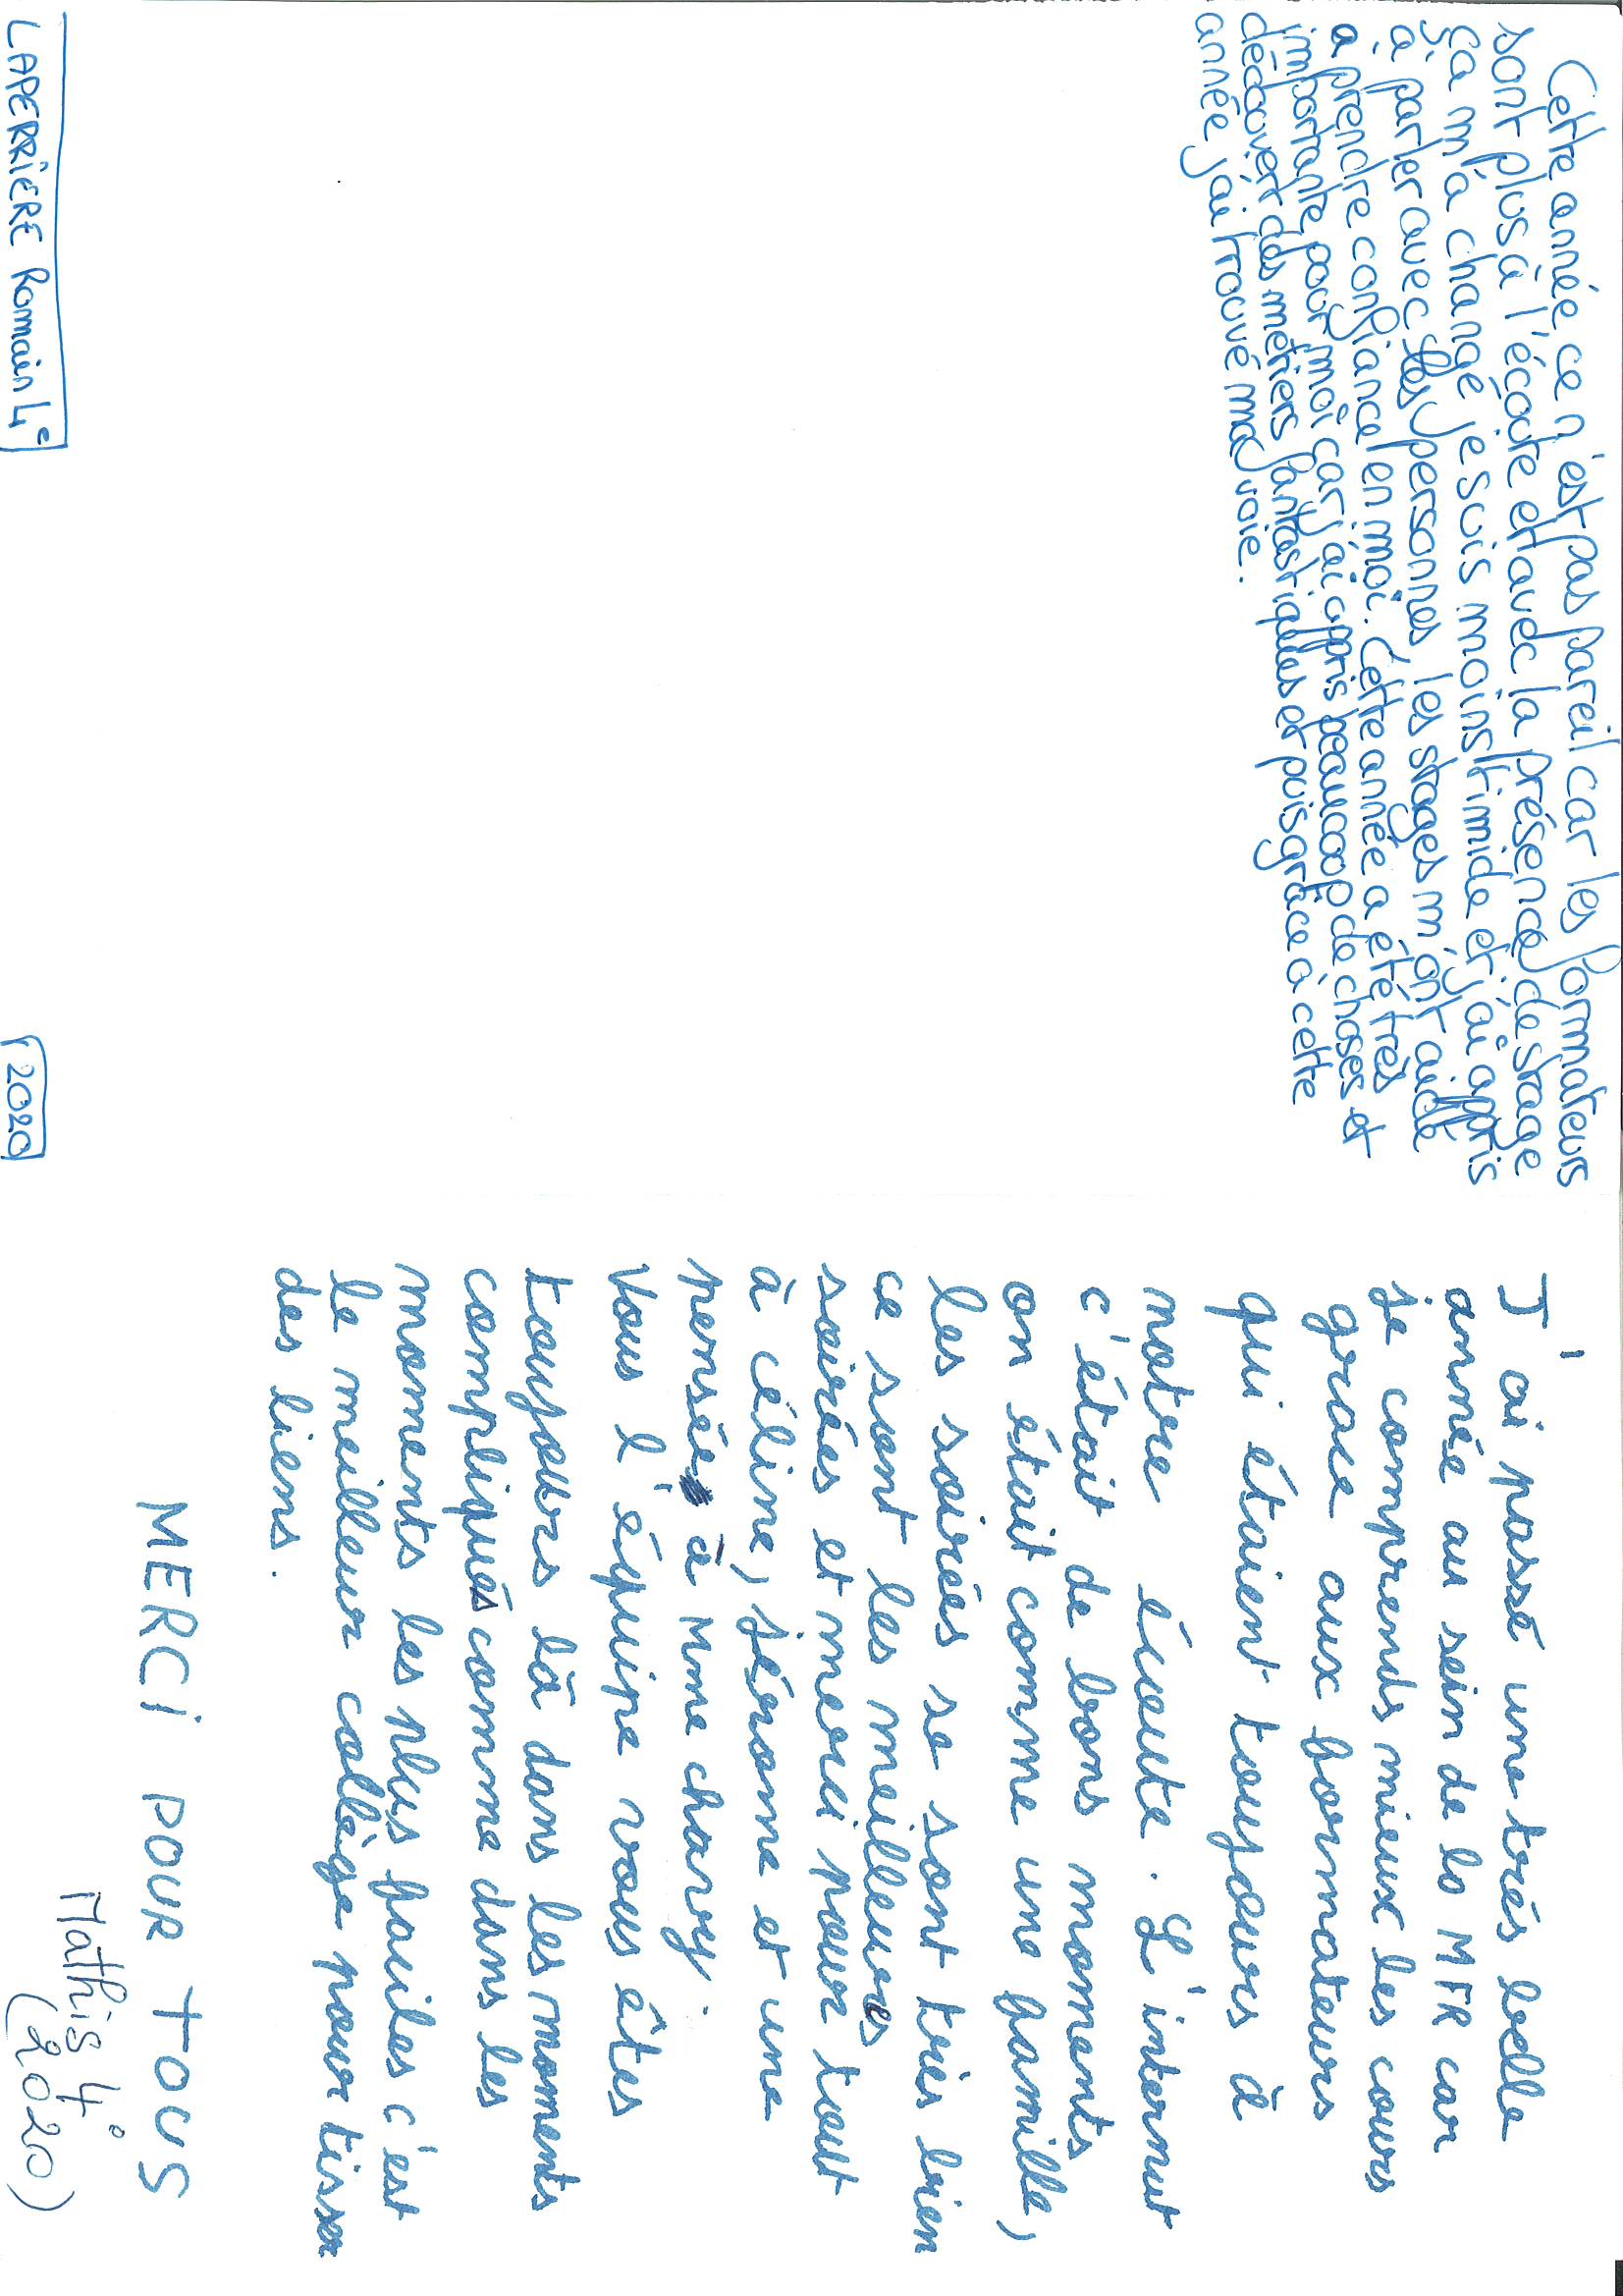 Cette année ce n'est pas pareil car les formateurs
sont plus à l'écoute et avec la présence de stage
ça m'a changé je suis moins timide et j'ai appris
à parler avec des personnes les stages m'ont aidé
a prendre confiance en moi. Cette année a été très
importante pour moi car j'ai appris beaucoup de choses et
découvert des métiers fantastiques et puis grâce à cette
année j'ai trouvé ma voie.
LAPERRIÈRE Romain 4e
2020
J'ai passé une très belle
année au sein de la MFR car
je comprends mieux les cours
grace aux formateurs
qui étaient toujours à
notre écoute. L'internat
c'était de bons moments
on était comme une famille,
les soirées se sont très bien
ce sont les meilleures
soirées et merci pour tout
à céline, jérome et une
pensée à Mme charvy.
Vous l'équipe vous êtes
toujours là dans les moments
compliqués comme dans les
moments les plus faciles c'est
le meilleur collège pour tisser
des liens.
MERCi POUR TOUS
Mathis 4°
(2020)